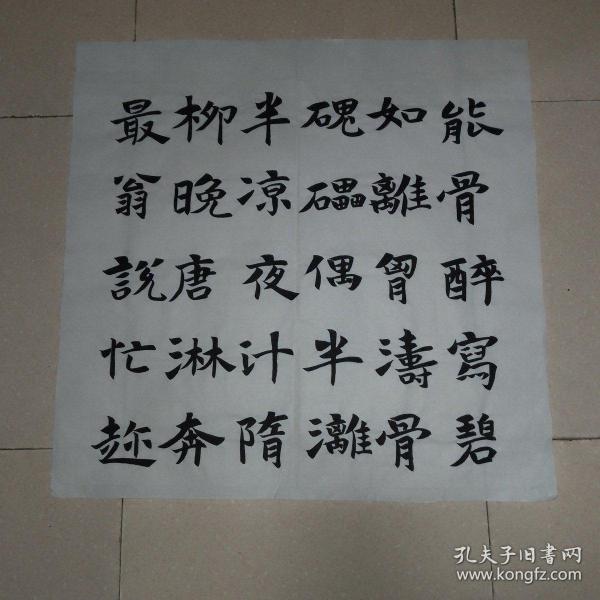 能骨醉寫碧
如離胷濤骨
磈礧偶半灕
半凉夜汁隋
柳晚唐淋奔
最翁說忙趂
孔夫子旧書网
www.kongfz.com